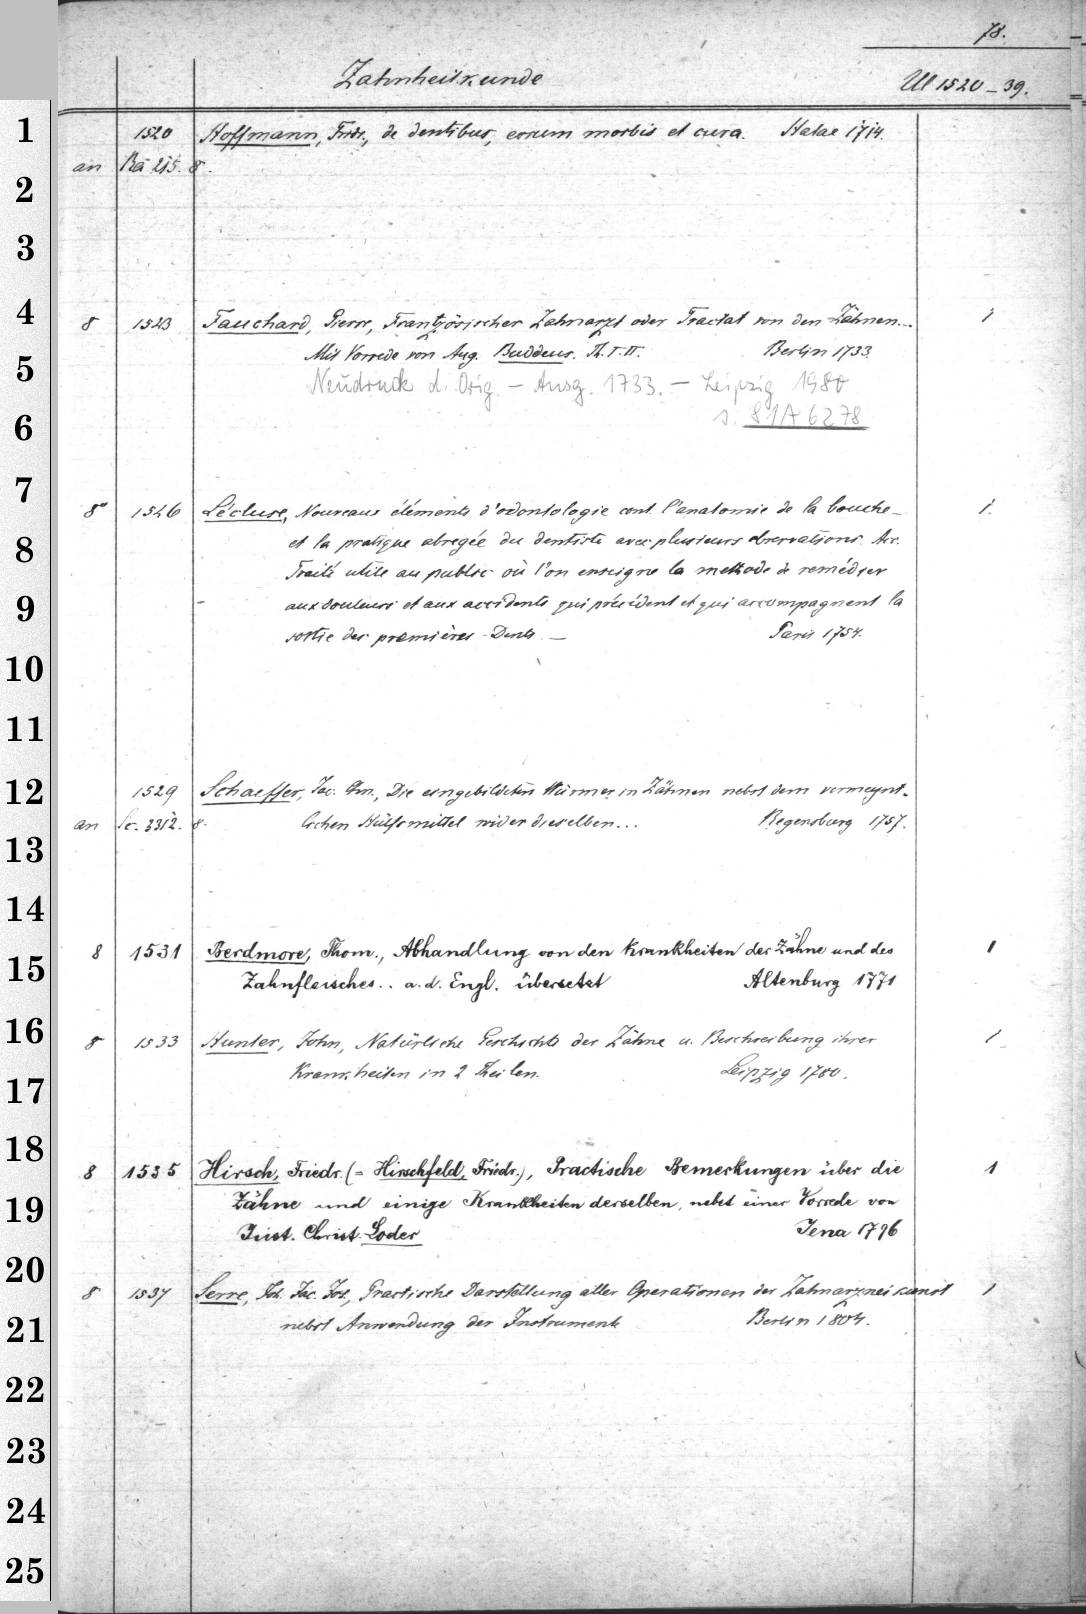 78.
Zahnheilkunde Ul 1520-39.
1 1520 Hoffmann, Fridr., de dentibus, eorum morbis et cura. Halae 1714.
an Ra 215. 8.
2
3
4 8 1523 Fauchard, Pierre, Frantzösischer Zahnarzt oder Tractat von den Zähnen... 1
Mit Vorrede von Aug. Buddeus. Th. I. II. Berlin 1733.
5 Neudruck d. Orig.-Ausg. 1733. - Leipzig 1980
6 s. 81 A 6278
7 8° 1526 Lécluse, Nouveaux éléments d'odontologie cont. l'anatomie de la bouche- 1.
8 et la pratique abregée du dentiste avec plusieurs observations. Acc.
Traité utile au public où l'on enseigne la methode de remédier
9 aux douleurs et aux accidents qui précédent et qui accompagnent la
sortie des premières Dents. — Paris 1754.
10
11
12 1529 Schaeffer, Jac. Chr., Die eingebildeten Würmer in Zähnen nebst dem vermeynt-
an Sc. 3312. 8. lichen Hülfsmittel wider dieselben... Regensburg 1757.
13
14
15 8 1531 Berdmore, Thom., Abhandlung von den Krankheiten der Zähne und des 1
Zahnfleisches.. a. d. Engl. übersetzt Altenburg 1771
16 8 1533 Hunter, John, Natürliche Geschichte der Zähne u. Beschreibung ihrer 1
17 Krankheiten in 2 Theilen. Leipzig 1780.
18 8 1535 Hirsch, Friedr. (= Hirschfeld, Friedr.), Practische Bemerkungen über die 1
19 Zähne und einige Krankheiten derselben, nebst einer Vorrede von
Just. Christ. Loder Jena 1796
20 8 1537 Serre, Joh. Jac. Jos., Practische Darstellung aller Operationen der Zahnarzneikunst 1
21 nebst Anwendung der Instrumente Berlin 1804.
22
23
24
25